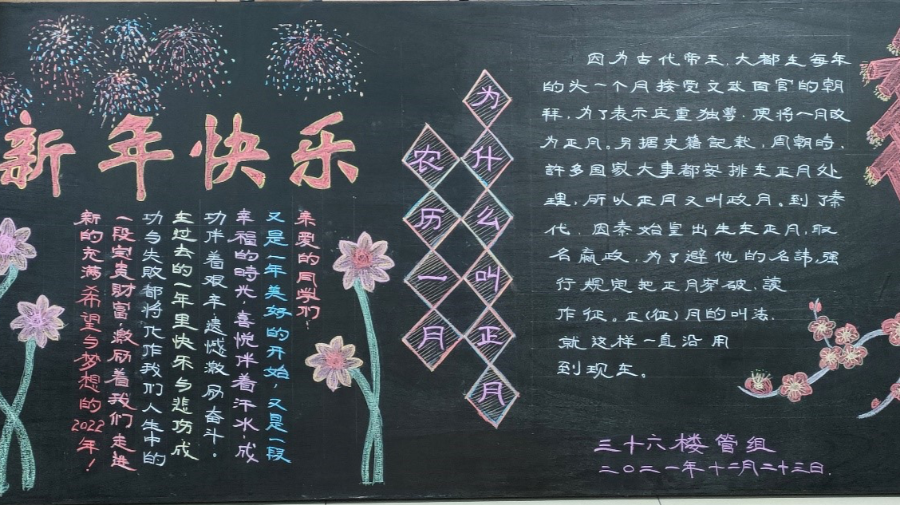 新年快乐
亲爱的同学们:
又是一年美好的开始,又是一段
幸福的时光,喜悦伴着汗水,成
功伴着艰辛,遗憾激励奋斗。
在过去的一年里快乐与悲伤成
功与失败都将化作我们人生中的
一段宝贵财富,激励着我们走进
新的充满希望与梦想的2022年!
农历一月
为什么叫正月
因为古代帝王,大都在每年
的头一个月接受文武百官的朝
拜,为了表示庄重独尊,便将一月改
为正月。另据史籍记载,周朝时,
許多国家大事都安排在正月处
理,所以正月又叫政月。到了秦
代,因秦始皇出生在正月,取
名嬴政,为了避他的名諱,强
行规定把正月
读
作征。正(征)月的叫法,
就这样一直沿用
到现在。
三十六楼管组
二〇二一年十二月二十三日.